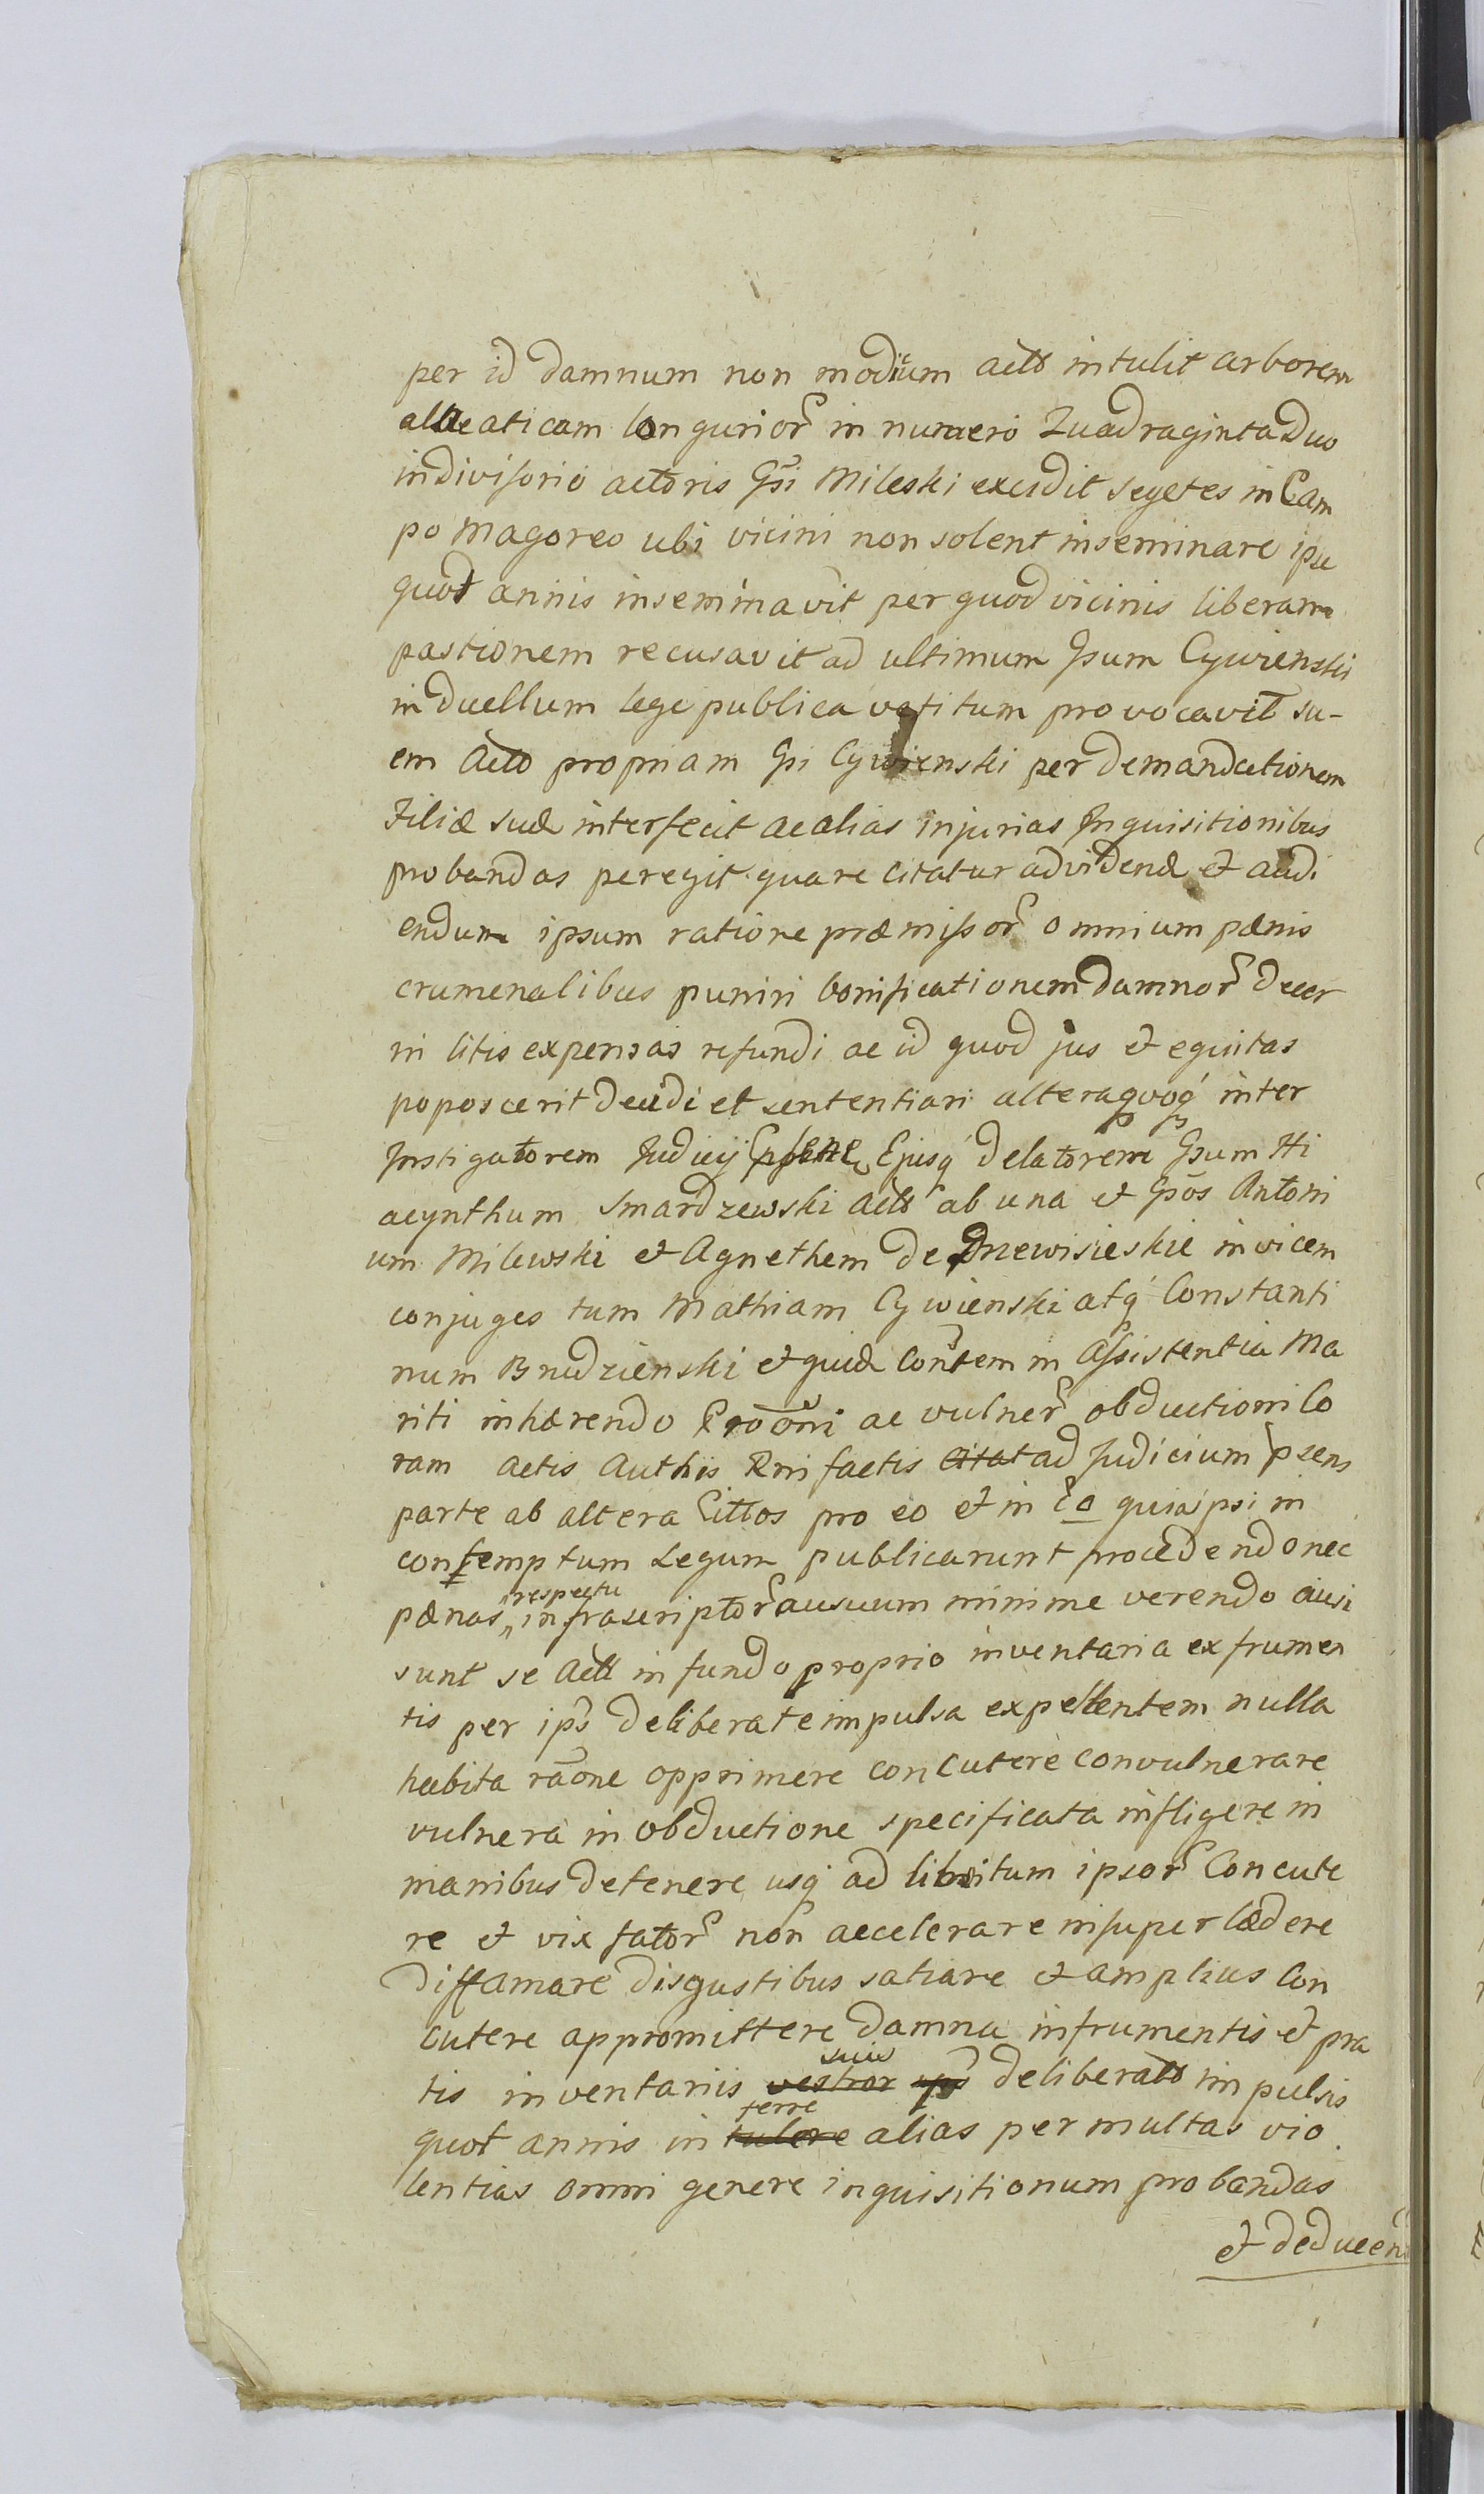 per id damnum non modicum actb intulit arborem
alveaticam longurior in numero Quadraginta Duo
indivisorio actoris Gsi Mileski excidit segetes in Cam
po Magoreo ubi vicini non solent inseminare ipse
quot annis inseminavit per quod vicinis liberam
pastionem recusavit ad ultimum Gsum Cywienski
in duellum lege publica vetitum provocavit su-
em Actb propriam Gsi Cywienski per demandationem
Filiæ suæ interfecit ac alias injurias Inquisitionibus
probandas peregit quare citatur ad vidend et audi
endum ipsum ratione præmissor omnium pænis
crumenalibus puniri bonificationem damnor decer
ni litis expensas refundi ac id quod jus et equitas
poposcerit decidi et sententiari altera quoq inter
Instigatorem Judicij Ejusq delatorem Gsum Hi
acynthum Smardzewski Actb ab una et Gsos Antoni
um Milewski et Agnethem de Drzewisieskie invicem
conjuges tum Mathiam Cywienski atq Constanti
num Brudzienski et quid Contem in Assistentia Ma
riti inhærendo Proōni ac vulner obductioni Co
ram Actis Authis Rni factis citat ad Judicium psens
parte ab altera Cittos pro eo et in Eo quia ipsi in
contemptum Legum publicarunt procedendo nec
pænas respectu infrascriptor ausuum minime verendo ausi
sunt se Actt in fundo proprio inventaria ex frumen
tis per ips deliberate impulsa expellentem nulla
habita raōne opprimere concutere convulnerare
vulnera in obductione specificata infligere in
manibus detenere usq ad libitum ipsor Concute
re et vix fator non accelerare insuper lædere
diffamare disgustibus satiare et amplius Con
cutere appromittere damna in frumentis et pra
tis inventariis vestror ips suis deliberatb impulsis
quot annis in tulere ferre alias per multas vio
lentias omni genere inquisitionum probandas
et deducen